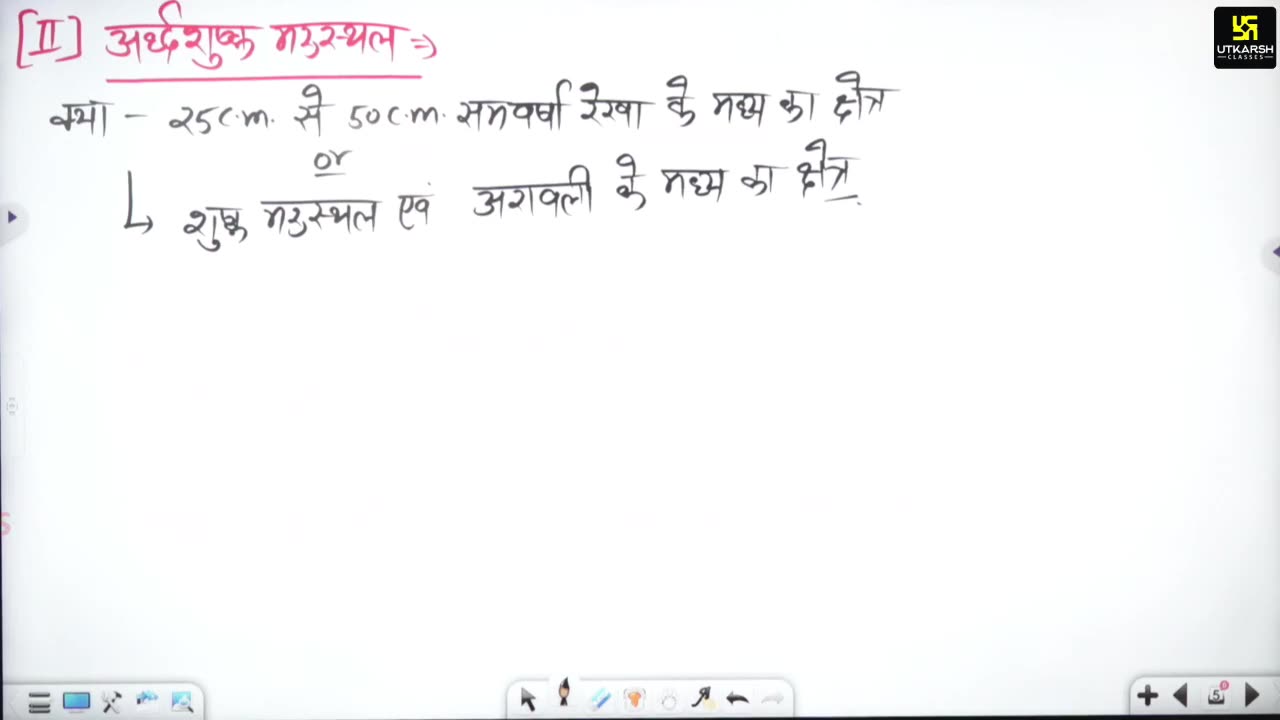 [II] अर्धशुष्क मरुस्थल ⇒
क्या - 25 c.m. से 50 c.m. समवर्षा रेखा के मध्य का क्षेत्र
or
↳ शुष्क मरुस्थल एवं अरावली के मध्य का क्षेत्र.
UTKARSH
CLASSES